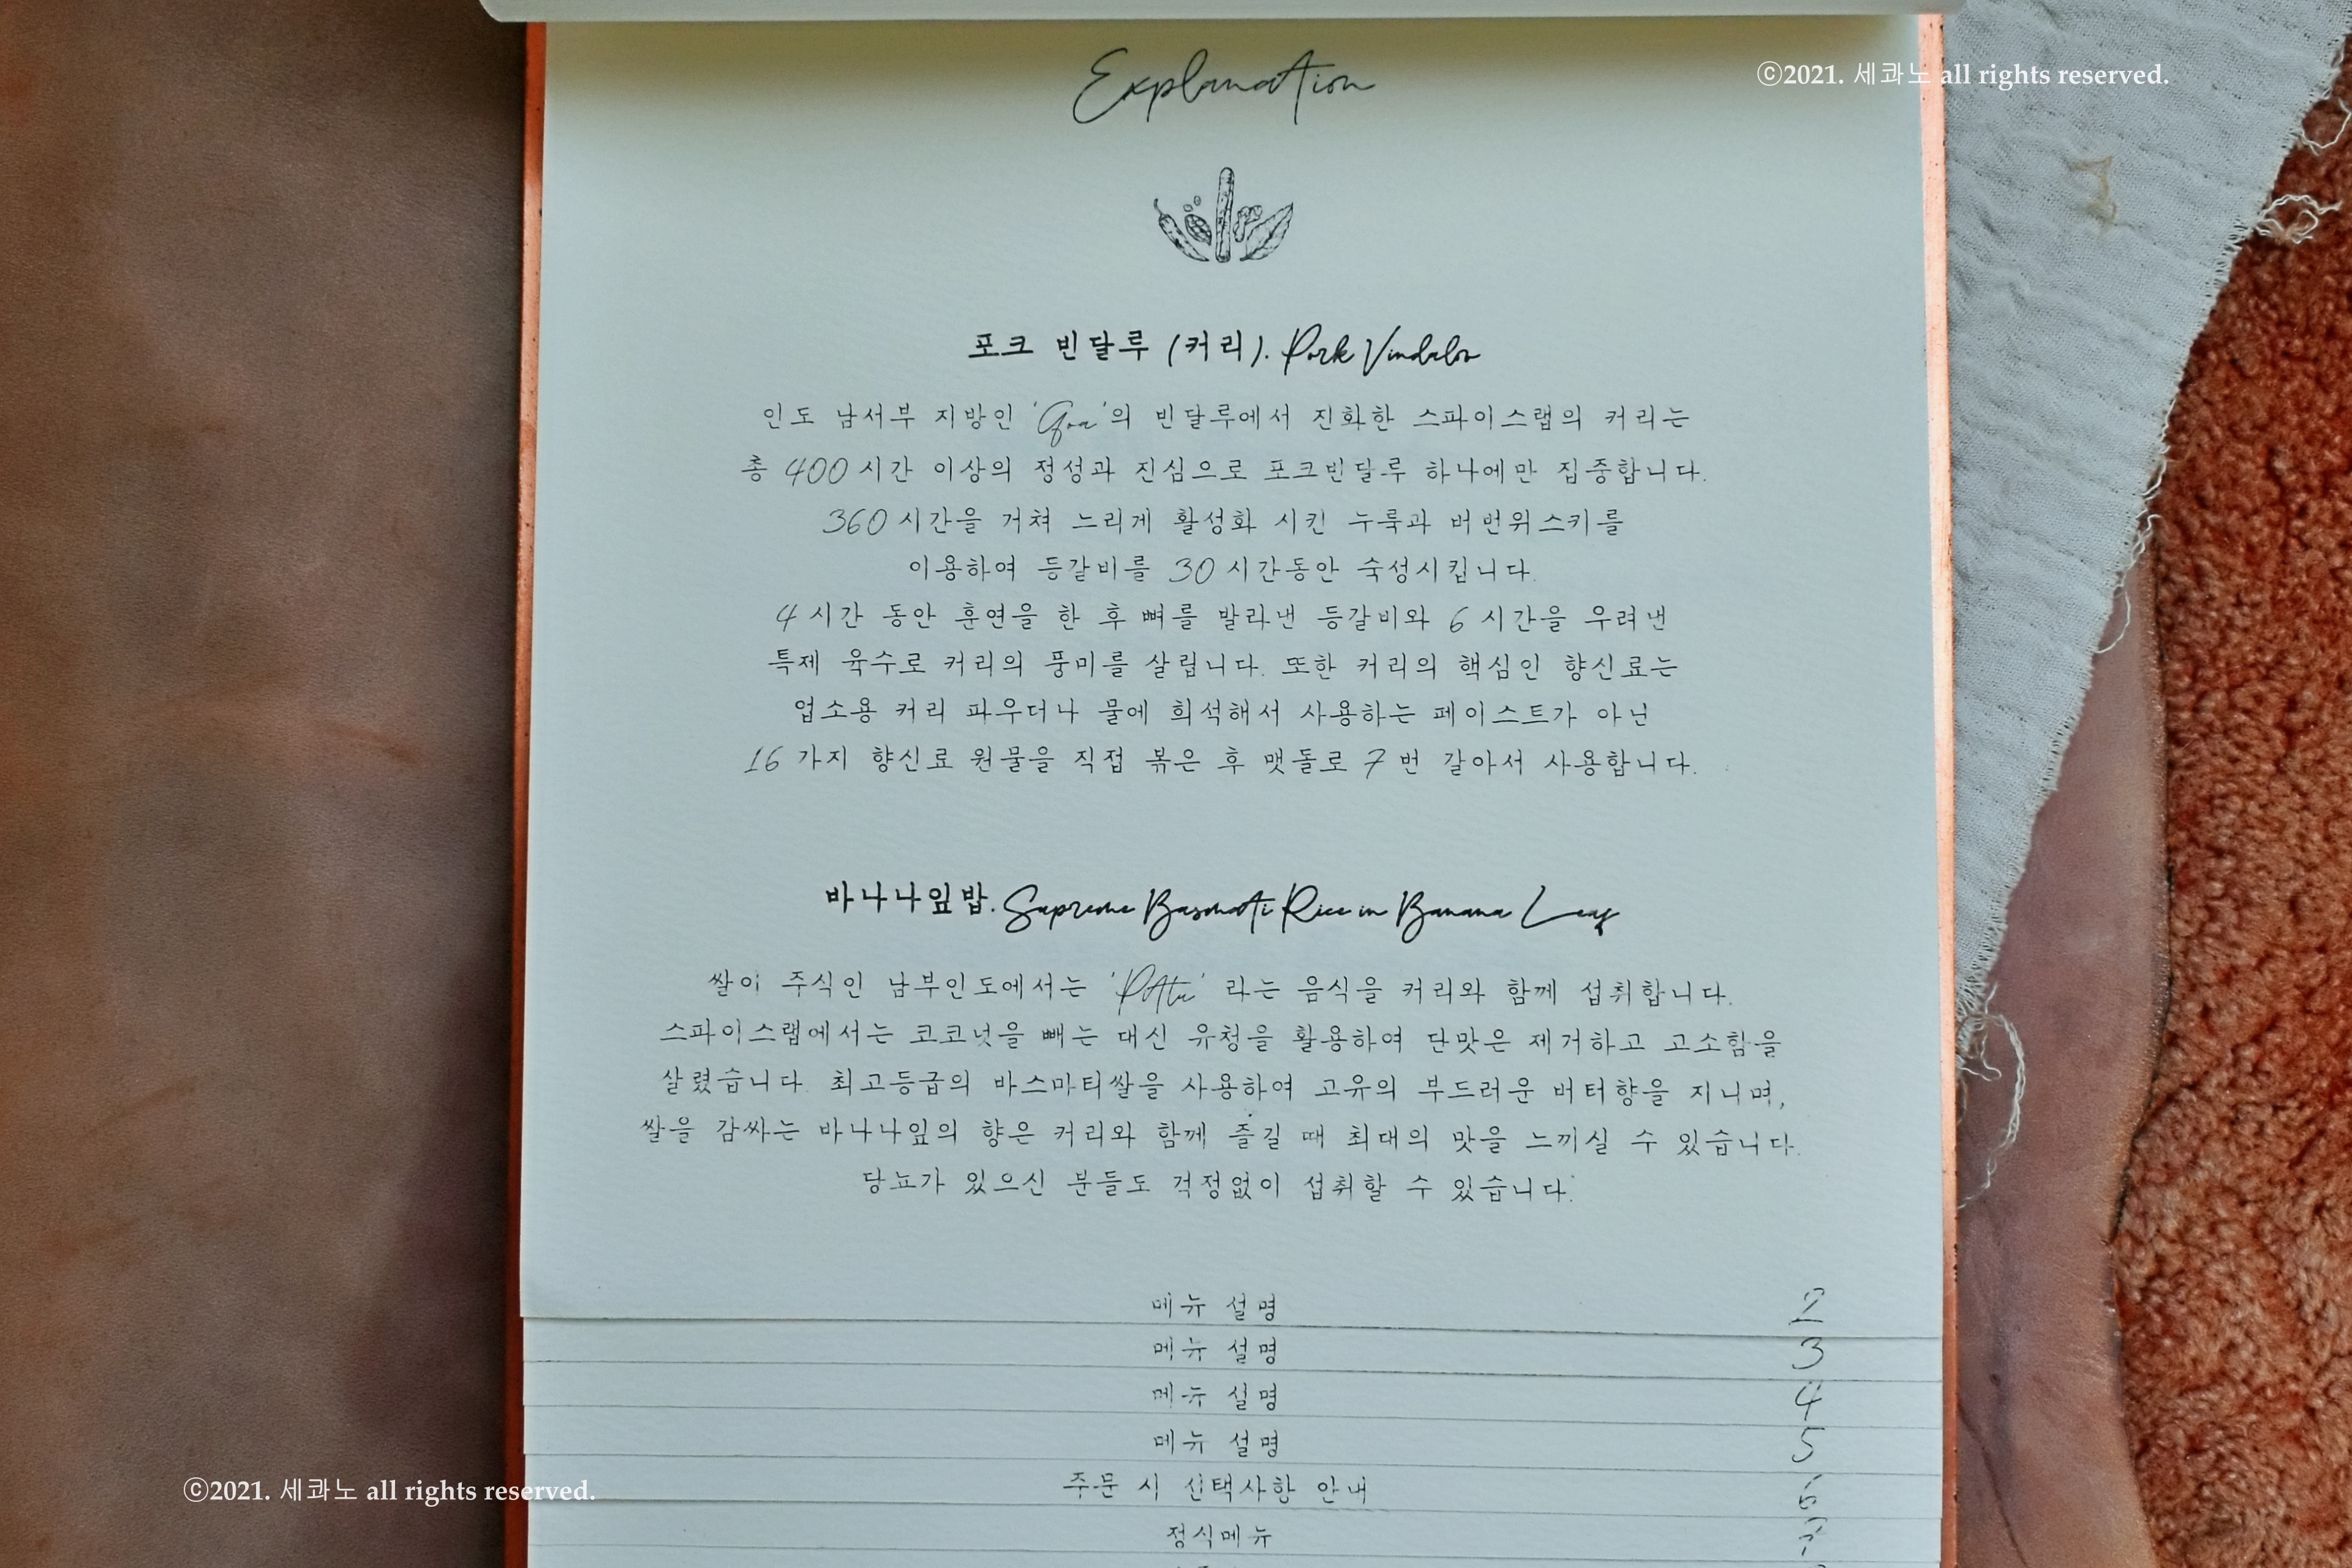 Explanation
ⓒ2021. 세콰노 all rights reserved.
포크 빈달루 (커리). Pork Vindaloo
인도 남서부 지방인 'Goa'의 빈달루에서 진화한 스파이스랩의 커리는
총 400시간 이상의 정성과 진심으로 포크빈달루 하나에만 집중합니다.
360시간을 거쳐 느리게 활성화 시킨 누룩과 버번위스키를
이용하여 등갈비를 30시간동안 숙성시킵니다.
4시간 동안 훈연을 한 후 뼈를 발라낸 등갈비와 6시간을 우려낸
특제 육수로 커리의 풍미를 살립니다. 또한 커리의 핵심인 향신료는
업소용 커리 파우더나 물에 희석해서 사용하는 페이스트가 아닌
16가지 향신료 원물을 직접 볶은 후 맷돌로 7번 갈아서 사용합니다.
바나나잎밥. Supreme Basmati Rice in Banana Leaf
쌀이 주식인 남부인도에서는 ' ' 라는 음식을 커리와 함께 섭취합니다.
스파이스랩에서는 코코넛을 빼는 대신 유청을 활용하여 단맛은 제거하고 고소함을
살렸습니다. 최고등급의 바스마티쌀을 사용하여 고유의 부드러운 버터향을 지니며,
쌀을 감싸는 바나나잎의 향은 커리와 함께 즐길 때 최대의 맛을 느끼실 수 있습니다.
당뇨가 있으신 분들도 걱정없이 섭취할 수 있습니다.
메뉴 설명 2
메뉴 설명 3
메뉴 설명 4
메뉴 설명 5
주문 시 선택사항 안내 6
정식메뉴
ⓒ2021. 세콰노 all rights reserved.